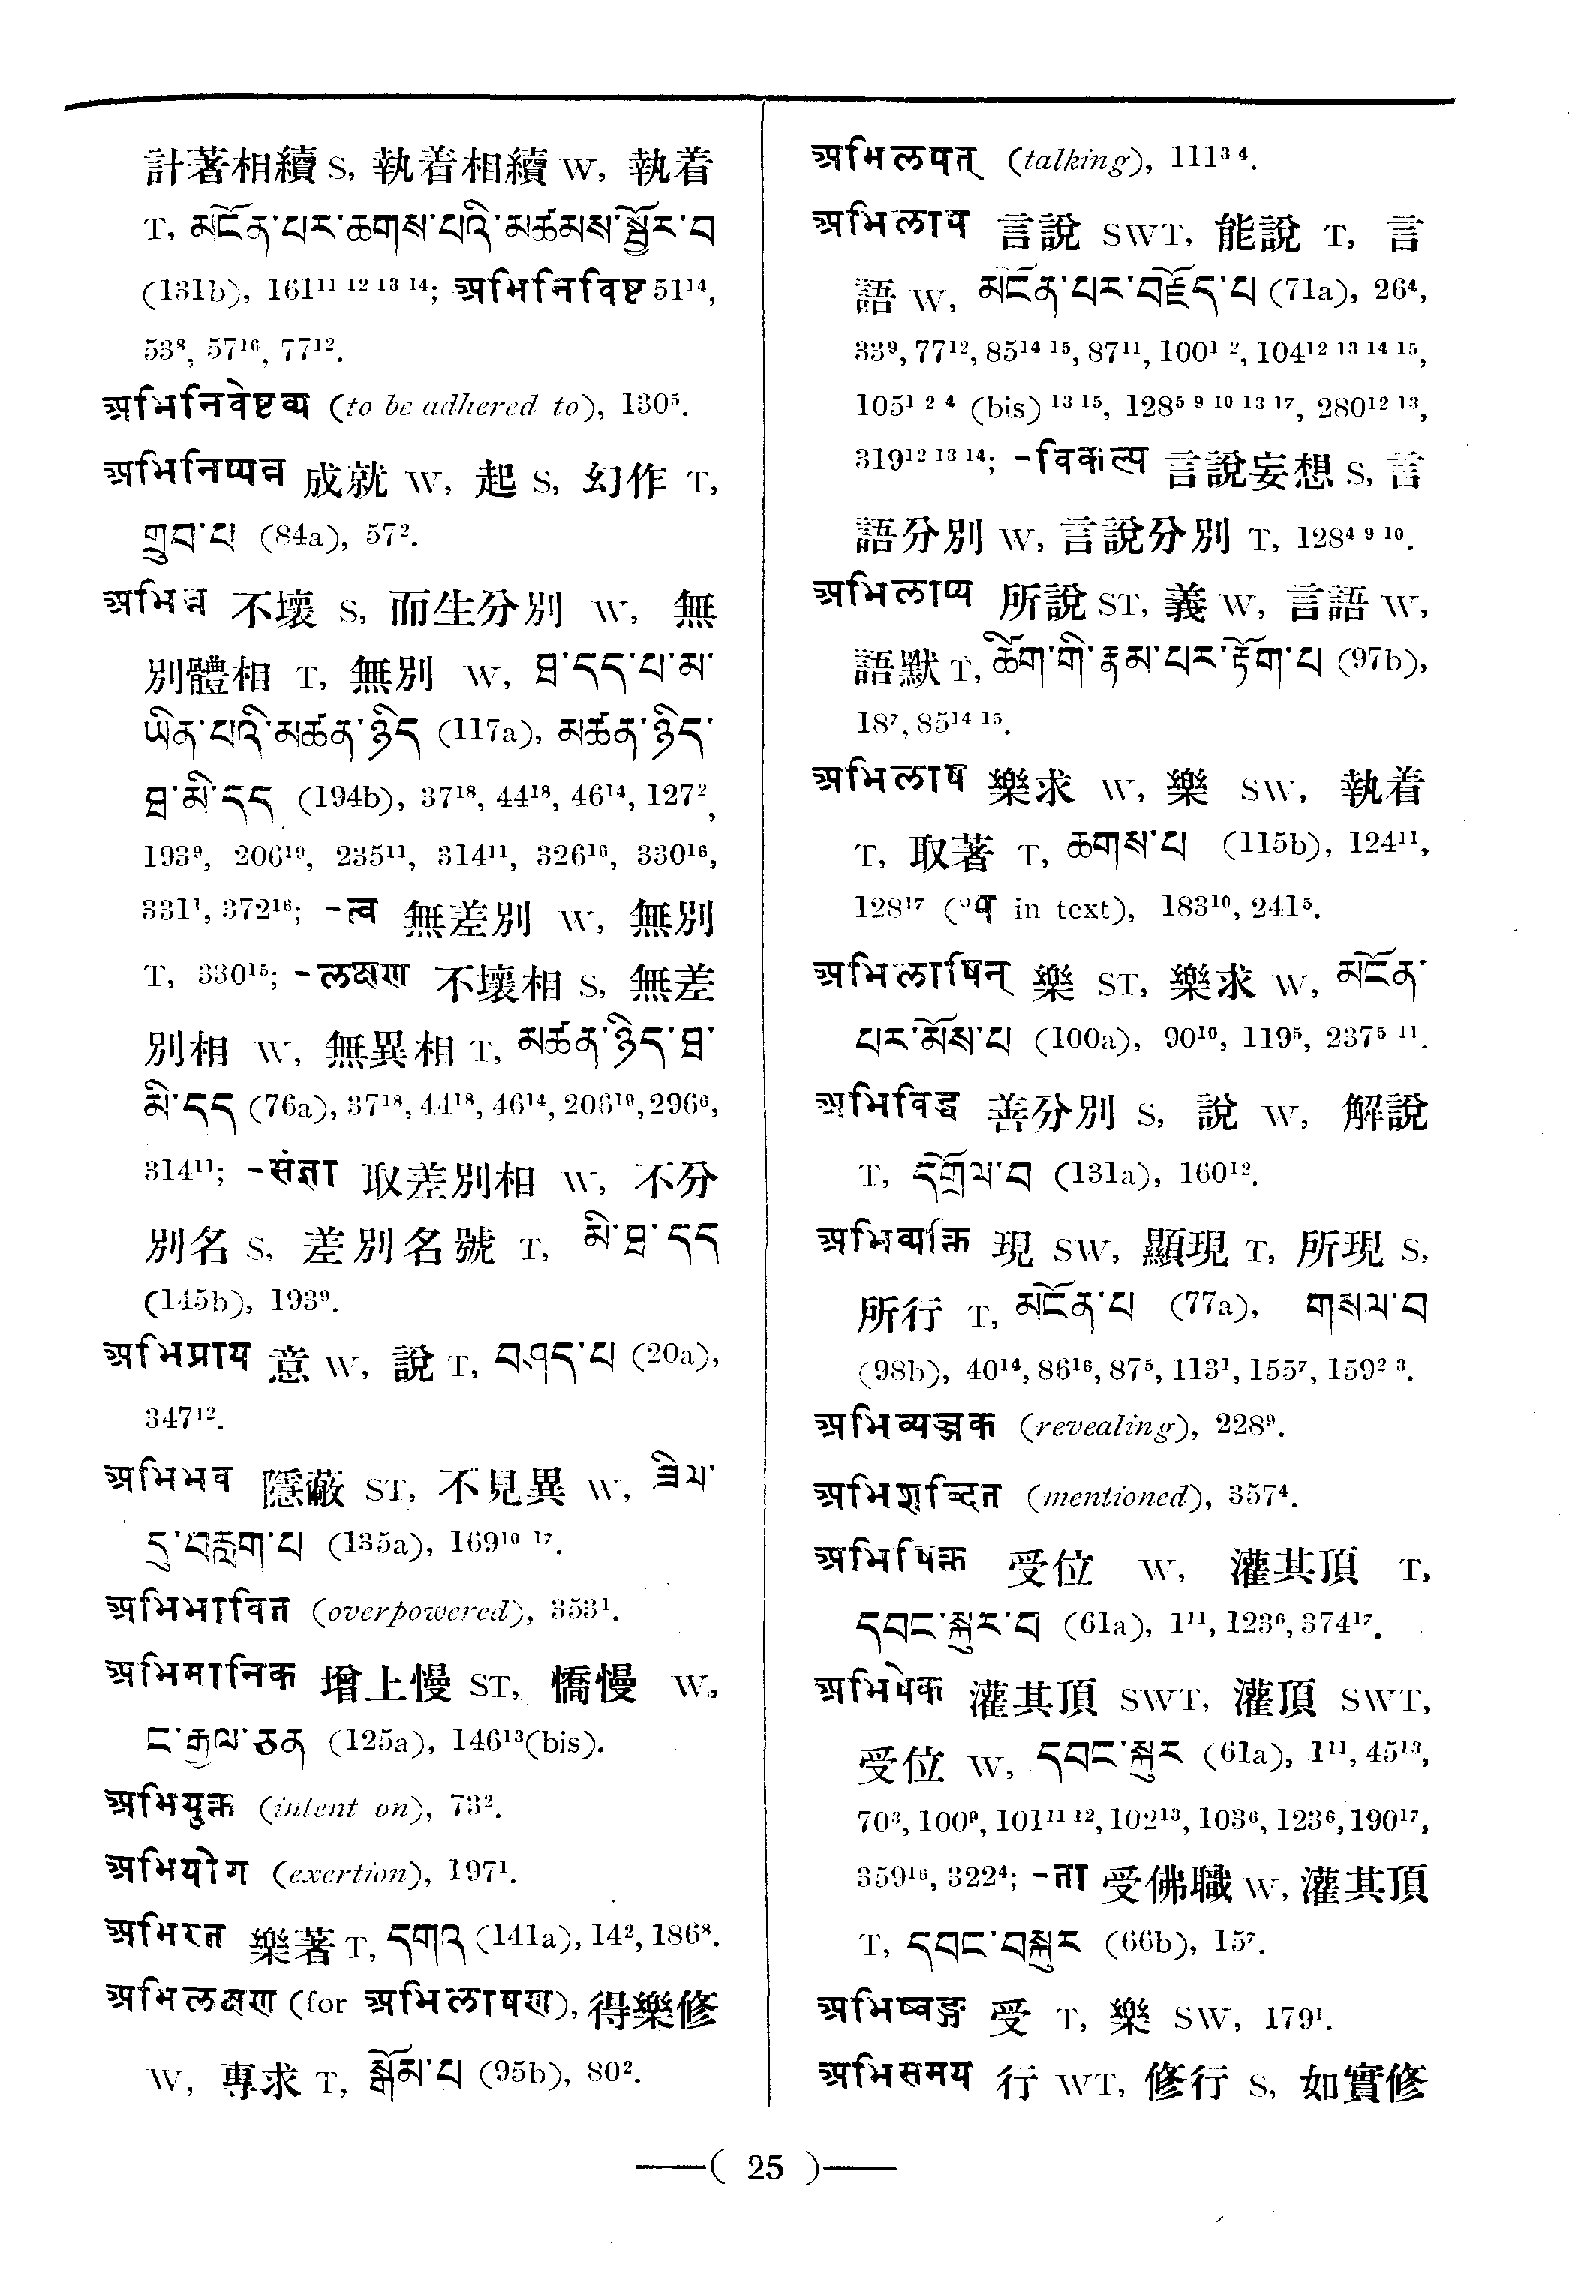 計著相續 S, 執着相續 W, 執着
T, མངོན་པར་ཆགས་པའི་མཚམས་སྦྱོར་བ
(131b), 161¹¹ ¹² ¹³ ¹⁴; अभिनिविष्ट 51¹⁴,
53⁸, 57¹⁶, 77¹².
अभिनिवेष्टव्य (to be adhered to), 130⁵.
अभिनिष्पन्न 成就 W, 起 S, 幻作 T,
གྲུབ་པ (84a), 57².
अभिन्न 不壞 S, 而生分別 W, 無
別體相 T, 無別 W, ཐ་དད་པ་མ་
ཡིན་པའི་མཚན་ཉིད (117a), མཚན་ཉིད་
ཐ་མི་དད (194b), 37¹⁸, 44¹⁸, 46¹⁴, 127²,
193⁹, 206¹⁹, 235¹¹, 314¹¹, 326¹⁶, 330¹⁶,
331¹, 372¹⁶; -त्व 無差別 W, 無別
T, 330¹⁵; -लक्षण 不壞相 S, 無差
別相 W, 無異相 T, མཚན་ཉིད་ཐ་
མི་དད (76a), 37¹⁸, 44¹⁸, 46¹⁴, 206¹⁹, 296⁶,
314¹¹; -संज्ञा 取差別相 W, 不分
別名 S, 差別名號 T, མི་ཐ་དད
(145b), 193⁹.
अभिप्राय 意 W, 說 T, བཤད་པ (20a),
347¹².
अभिभव 隱蔽 ST, 不見異 W, ཟིལ་
དུ་བརླག་པ (135a), 169¹⁰ ¹⁷.
अभिभावित (overpowered), 353¹.
अभिमानिक 增上慢 ST, 憍慢 W,
ང་རྒྱལ་ཅན (125a), 146¹³(bis).
अभियुक्त (intent on), 73².
अभियोग (exertion), 197¹.
अभिरत 樂著 T, དགའ (141a), 14², 186⁸.
अभिलक्षण (for अभिलाषण), 得樂修
W, 專求 T, སྒོམ་པ (95b), 80².
अभिलपत् (talking), 111³ ⁴.
अभिलाप 言說 SWT, 能說 T, 言
語 W, མངོན་པར་བརྗོད་པ (71a), 26⁴,
33⁹, 77¹², 85¹⁴ ¹⁵, 87¹¹, 100¹ ², 104¹² ¹³ ¹⁴ ¹⁵,
105¹ ² ⁴ (bis) ¹³ ¹⁵, 128⁵ ⁹ ¹⁰ ¹³ ¹⁷, 280¹² ¹³,
319¹² ¹³ ¹⁴; -विकल्प 言說妄想 S, 言
語分別 W, 言說分別 T, 128⁴ ⁹ ¹⁰.
अभिलाप्य 所說 ST, 義 W, 言語 W,
語默 T, ཚིག་གི་རྣམ་པར་རྟོག་པ (97b),
18⁷, 85¹⁴ ¹⁵.
अभिलाष 樂求 W, 樂 SW, 執着
T, 取著 T, ཆགས་པ (115b), 124¹¹,
128¹⁷ (°प in text), 183¹⁰, 241⁵.
अभिलाषिन् 樂 ST, 樂求 W, མངོན་
པར་མོས་པ (100a), 90¹⁰, 119⁵, 237⁵ ¹¹.
अभिविद्ध 善分別 S, 說 W, 解說
T, དགྲོལ་བ (131a), 160¹².
अभिव्यक्ति 現 SW, 顯現 T, 所現 S,
所行 T, མངོན་པ (77a), གསལ་བ
(98b), 40¹⁴, 86¹⁶, 87⁵, 113¹, 155⁷, 159² ³.
अभिव्यञ्जक (revealing), 228⁹.
अभिशब्दित (mentioned), 357⁴.
अभिषिक्त 受位 W, 灌其頂 T,
དབང་སྐུར་བ (61a), 1¹¹, 123⁶, 374¹⁷.
अभिषेक 灌其頂 SWT, 灌頂 SWT,
受位 W, དབང་སྐུར (61a), 1¹¹, 45¹³,
70³, 100⁹, 101¹¹ ¹², 102¹³, 103⁶, 123⁶, 190¹⁷,
359¹⁶, 322⁴; -ता 受佛職 W, 灌其頂
T, དབང་བསྐུར (66b), 15⁷.
अभिष्वङ्ग 受 T, 樂 SW, 179¹.
अभिसमय 行 WT, 修行 S, 如實修
—( 25 )—